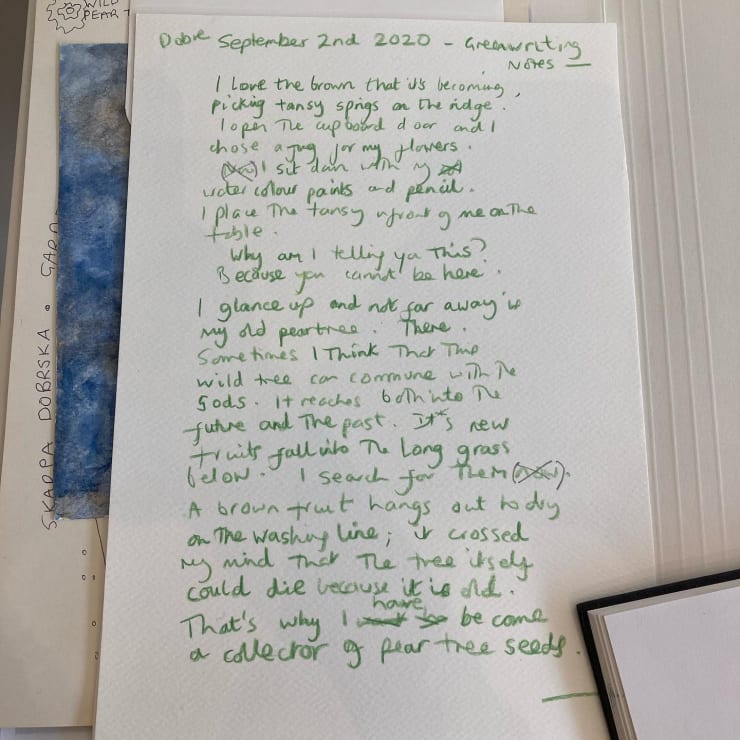 WILD
PEAR T
SKARPA DOBRSKA • GARD
Dobre September 2nd 2020 - Greenwriting
Notes
I love the brown that it's becoming,
picking tansy sprigs on the ridge.
I open the cupboard door and I
chose a jug for my flowers.
I sit down with my
water colour paints and pencil.
I place the tansy infront of me on the
table.
Why am I telling you this?
Because you cannot be here.
I glance up and not far away is
my old peartree. There.
Sometimes I think that this
wild tree can commune with the
Gods. It reaches both into the
future and the past. It's new
fruits fall into the long grass
below. I search for them (now).
A brown fruit hangs out to dry
on the washing line; it crossed
my mind that the tree itself
could die because it is old.
That's why I have become
a collector of pear tree seeds.